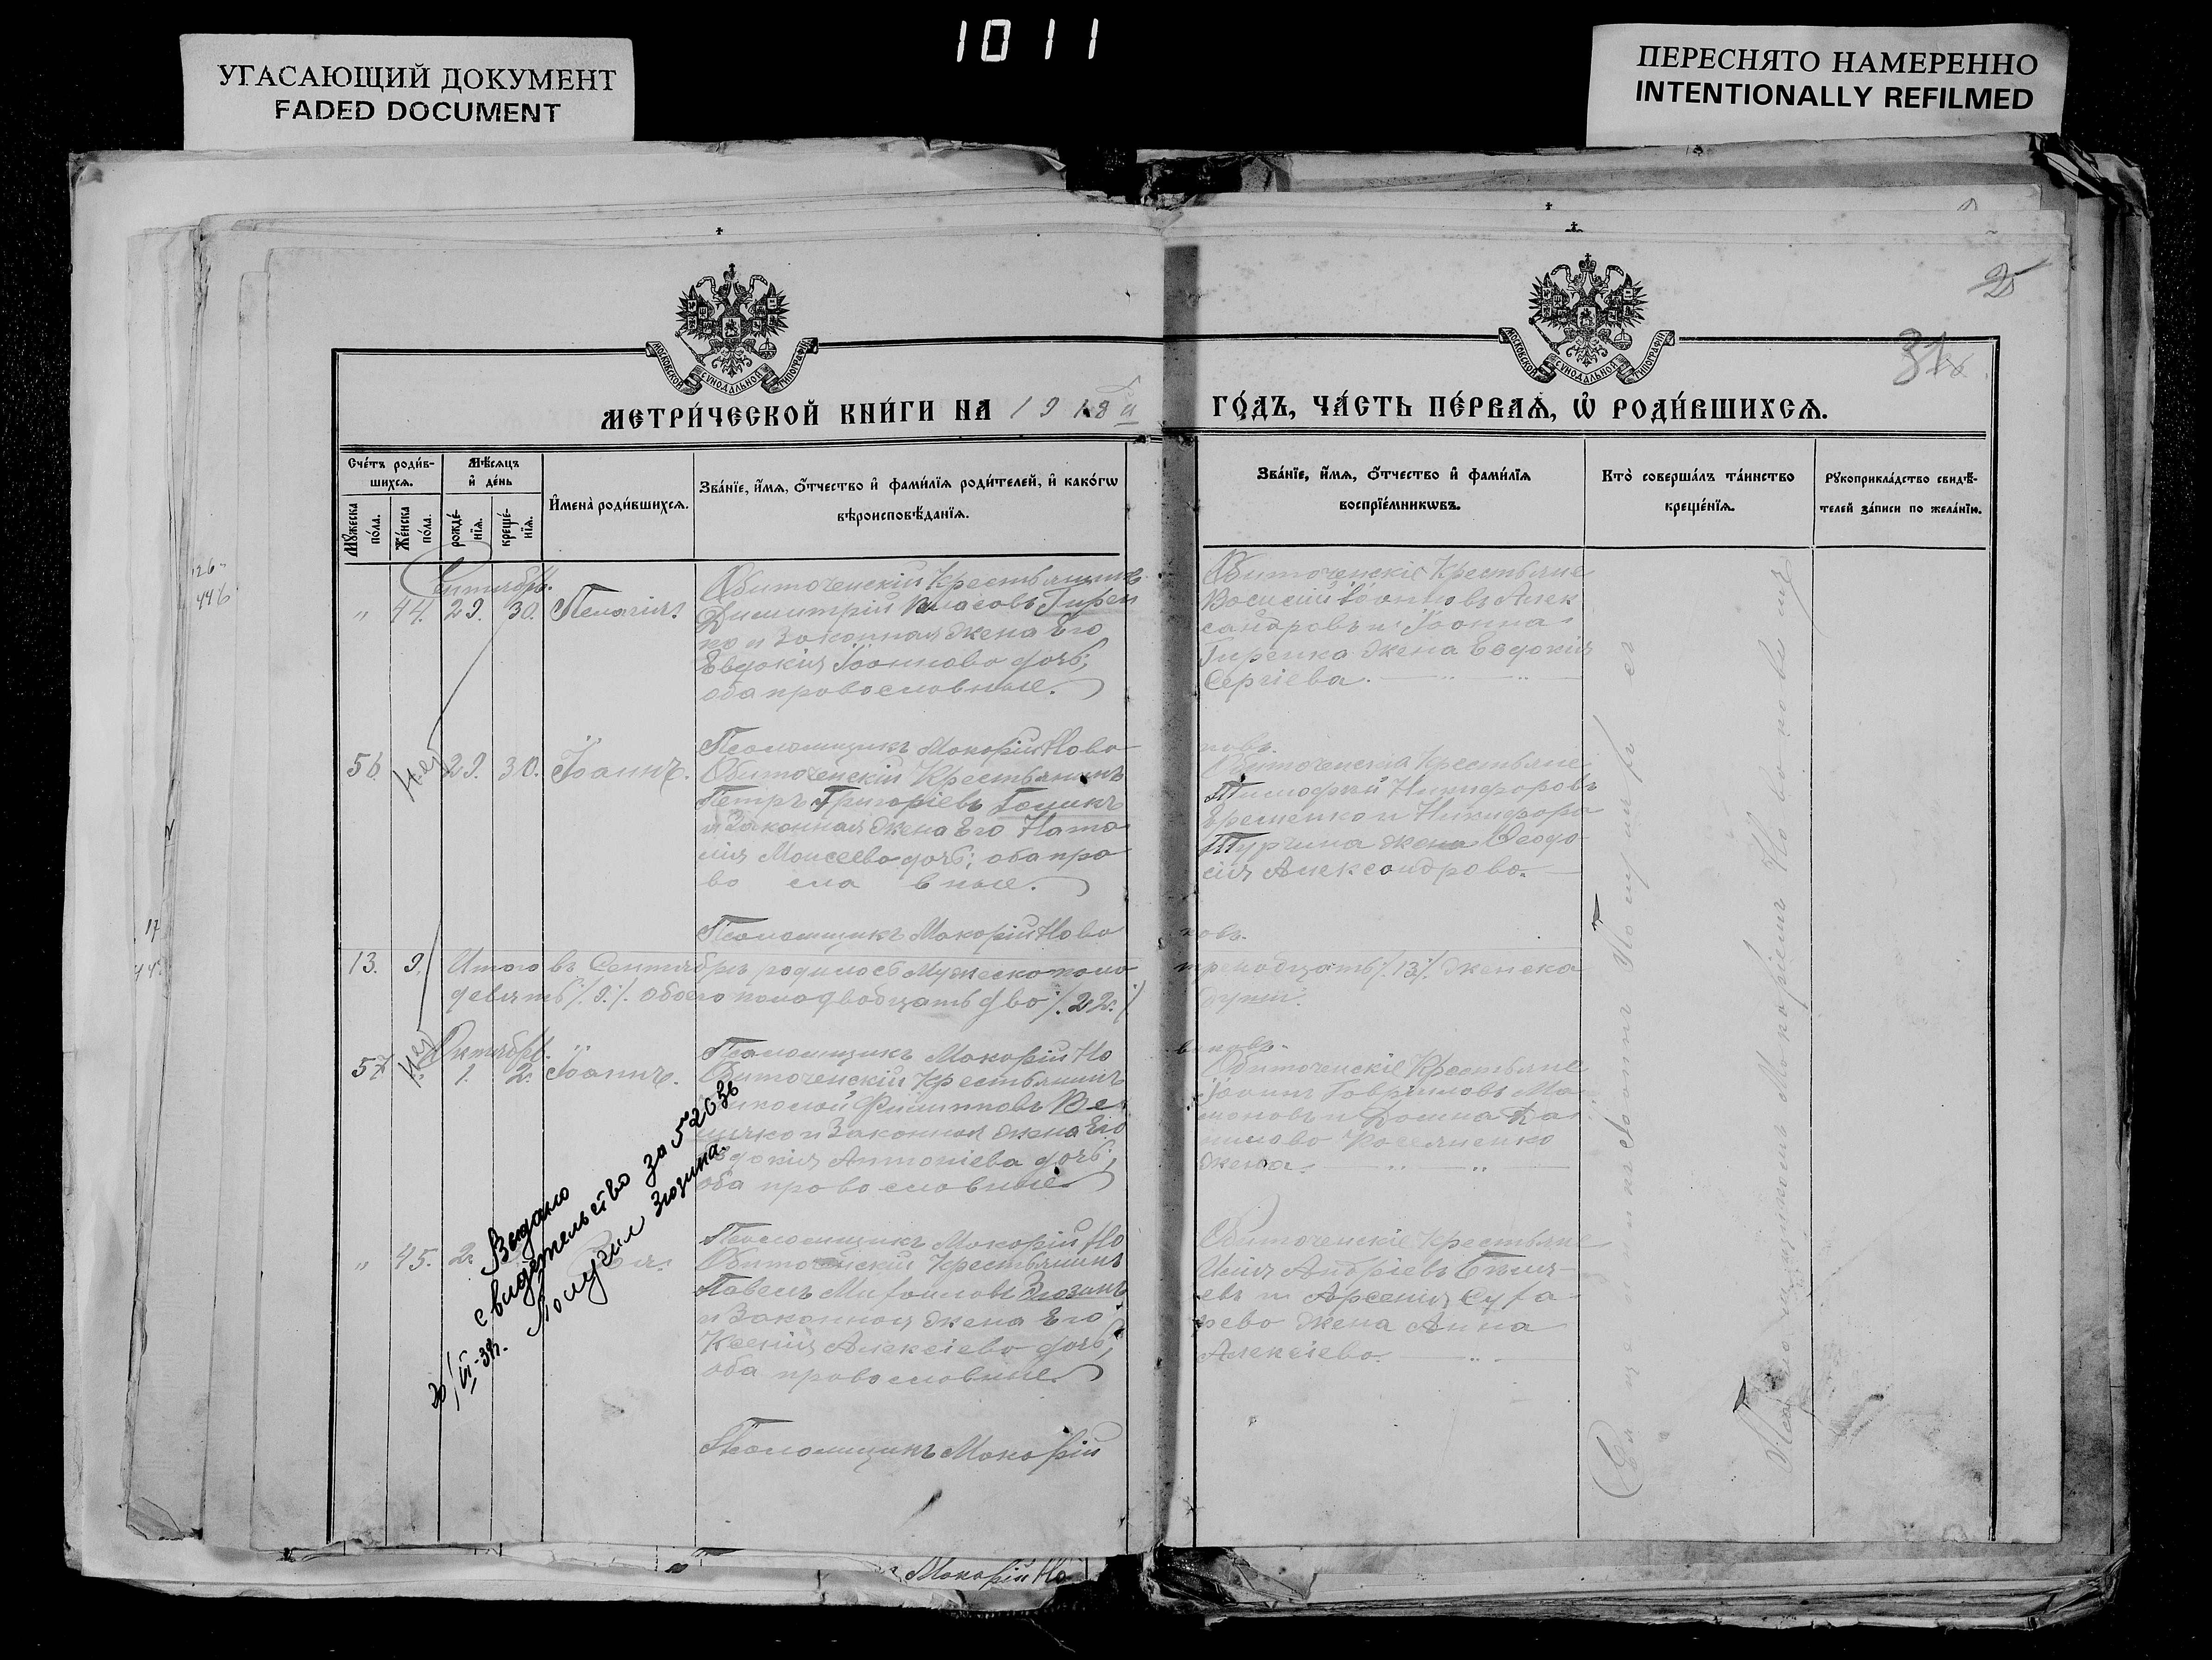 1011
УГАСАЮЩИЙ ДОКУМЕНТ
FADED DOCUMENT
ПЕРЕСНЯТО НАМЕРЕННО
INTENTIONALLY REFILMED
МОСКОВСКОЙ СѴНОДАЛЬНОЙ ТИПОГРАФІИ
МОСКОВСКОЙ СѴНОДАЛЬНОЙ ТИПОГРАФІИ
31
МЕТРИ́ЧЕСКОЙ КНИ́ГИ НА 1918й
ГО́ДЪ, ЧА́СТЬ ПЕ́РВАѦ, Ѡ҆ РОДИ́ВШИХСѦ.
Сче́тъ роди́в-
шихсѧ.
Мꙋжеска по́ла.
Же́нска по́ла.
Мѣ́сѧцъ
и҆ де́нь
рожде́-
нїѧ.
креще́-
нїѧ.
И҆мена̀ роди́вшихсѧ.
Зва́нїе, и҆́мѧ, ѻ҆́тчество и҆ фами́лїѧ роди́телей, и҆ како́гѡ
вѣроисповѣ́данїѧ.
Зва́нїе, и҆́мѧ, ѻ҆́тчество и҆ фами́лїѧ
воспрїе́мникѡвъ.
Кто̀ соверша́лъ та́инство
креще́нїѧ.
Рꙋкоприкла́дство свидѣ́-
телей за́писи по жела́нїю.
Сентябрь.
" 44. 29. 30. Пелагія.
Обиточенскій Крестьянинъ
Димитрій Власовъ Гирен
ко и Законная жена Его
Евдокія Іоаннова дочь;
оба православные.
Обиточенскіе Крестьяне
Василій Іоанновъ Алек
сандровъ и Іоанна
Гиренка жена Евдокія
Сергіева.
Псаломщикъ Макарій Ново
ковъ.
56. 29. 30. Іоаннъ.
Обиточенскій Крестьянинъ
Петръ Григоріевъ
и Законная жена Его Ната
лія Моисеева дочь; оба пра
во сла вные.
Обиточенскіе Крестьяне
Тимофей Никифоровъ
Еременко и Никифора
Турчина жена Ѳеодо
сія Александрова.
Псаломщикъ Макарій Ново
ковъ.
13. 9. Итого въ Сентябрѣ родилось Мужеска пола
тренадцать /.13./. женска
девять /.9./. обоего пола двадцать два /.22./
душъ.
Октябрь.
Псаломщикъ Макарій Но
воковъ.
57. 1. 2. Іоаннъ.
Обиточенскій Крестьянинъ
Николай Филипповъ Ве
личко и Законная жена Его
Евдокія Антоніева дочь;
оба православные
Обиточенскіе Крестьяне
Іоаннъ Гавріиловъ Ма
моновъ и Домна Да
нилова
жена.
Псаломщикъ Макарій Но
" 45. 2.
Обиточенскій Крестьянинъ
Павелъ Михаиловъ Зюзинъ
и Законная жена Его
Ксенія Алексіева дочь;
оба православные.
Обиточенскіе Крестьяне
Илія Андріевъ
евъ и Арсенія Суха
рева жена Анна
Алексіева.
Псаломщикъ Макарій
Выдано
свидетельство за № 5203
Получил Зюзина.
20/VI-39г.
Макарій Но